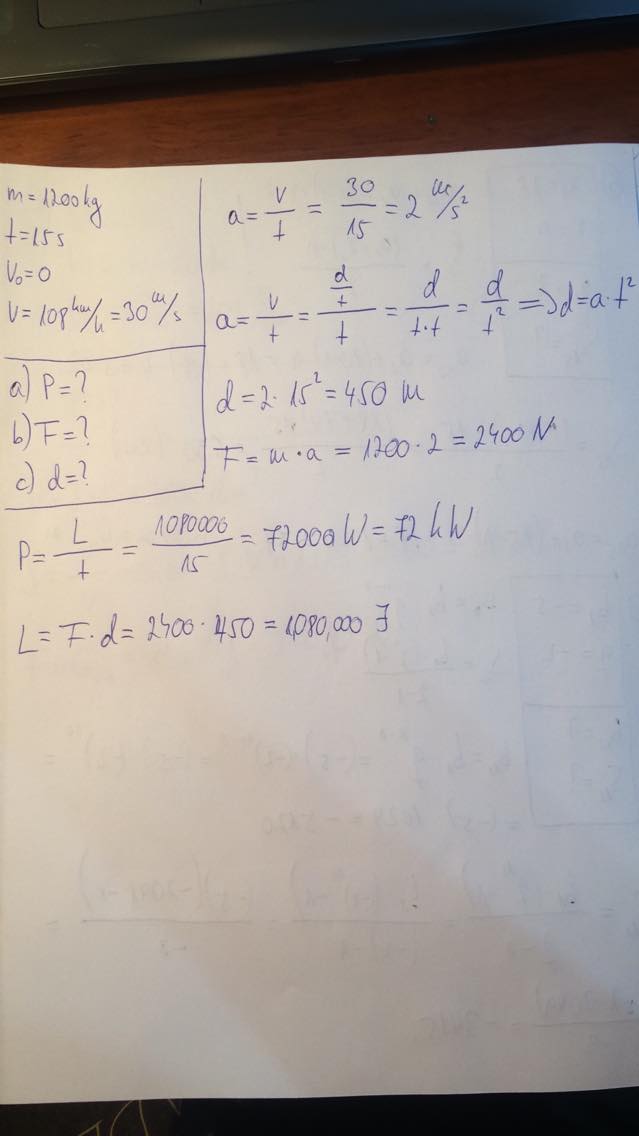 m = 1200 kg
t = 15 s
V₀ = 0
V = 108 km/h = 30 m/s
a) P = ?
b) F = ?
c) d = ?
a = V/t = 30/15 = 2 m/s²
a = V/t = (d/t)/t = d/(t·t) = d/t² => d = a·t²
d = 2·15² = 450 m
F = m·a = 1200·2 = 2400 N
P = L/t = 1080000/15 = 72000 W = 72 kW
L = F·d = 2400·450 = 1,080,000 J